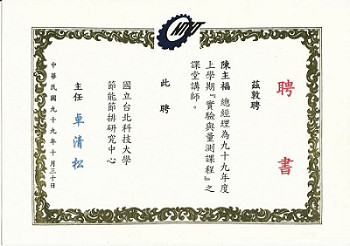 NTUT
聘書
茲敦聘
陳主福 總經理為九十九年度
上學期『實驗與量測課程』之
課堂講師。
此聘
國立台北科技大學
節能節排研究中心
主任 卓清松
中華民國九十九年十月三十日